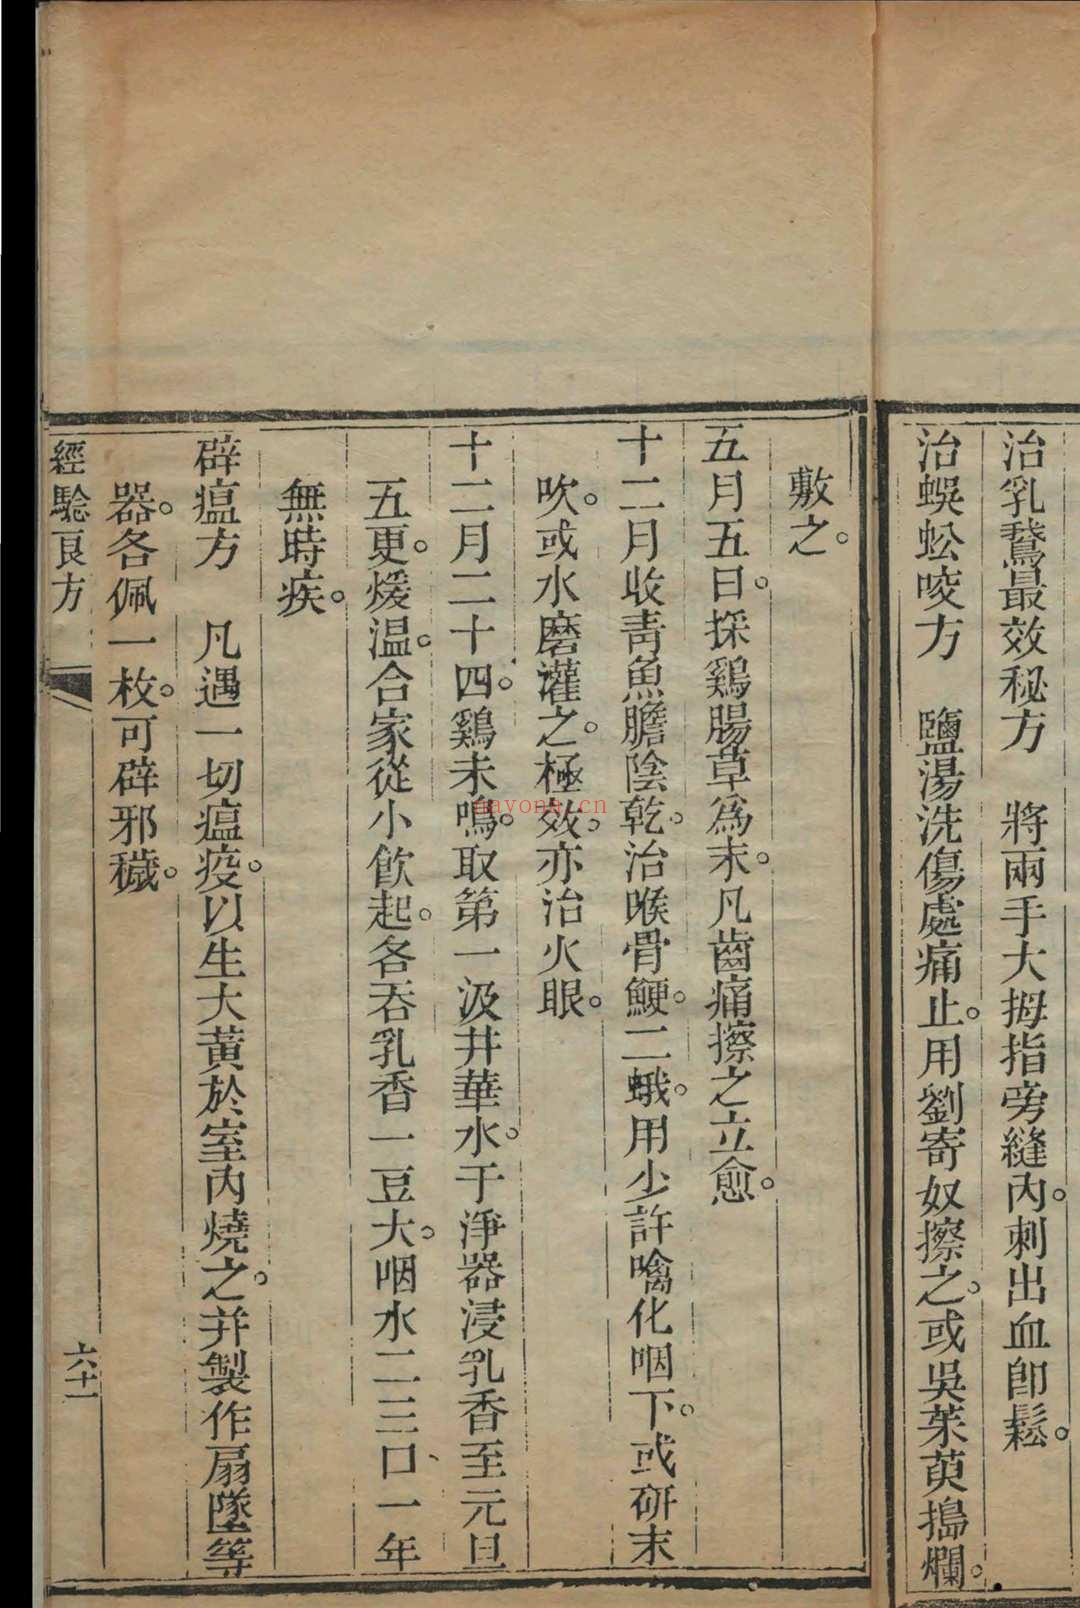 治乳鵞最效秘方　將兩手大拇指旁縫內。刺出血卽鬆。
治蜈蚣咬方　鹽湯洗傷處痛止。用劉寄奴擦之。或吳茱萸搗爛。
敷之。
五月五日。採鷄腸草為末。凡齒痛擦之立愈。
十二月收靑魚膽陰乾。治喉骨鯁。二蛾。用少許噙化咽下。或研末
吹。或水磨灌之。極效。亦治火眼。
十二月二十四。鷄未鳴。取第一汲井華水。于淨器浸乳香至元旦
五更。煖温。合家從小飮起。各吞乳香一豆大。咽水二三口、一年
無時疾。
辟瘟方　凡遇一切瘟疫。以生大黃於室內燒之。并製作扇墜等
器。各佩一枚。可辟邪穢。
經驗良方
六十一
nayona.cn